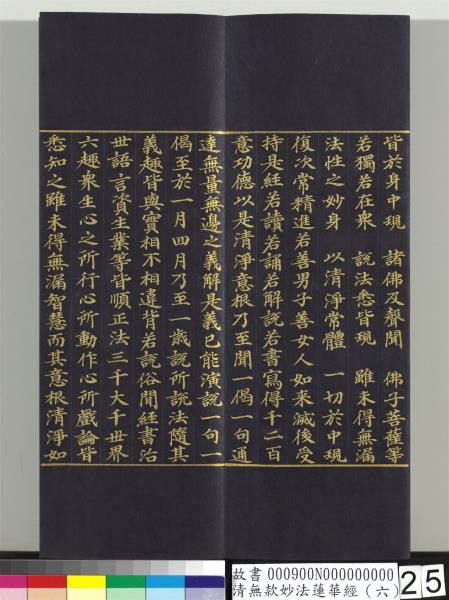 皆於身中現　諸佛及聲聞　佛子菩薩等
若獨若在眾　說法悉皆現　雖未得無漏
法性之妙身　以清淨常體　一切於中現
復次常精進若善男子善女人如來滅後受
持是經若讀若誦若解說若書寫得千二百
意功德以是清淨意根乃至聞一偈一句通
達無量無邊之義解是義已能演說一句一
偈至於一月四月乃至一歲諸所說法隨其
義趣皆與實相不相違背若說俗間經書治
世語言資生業等皆順正法三千大千世界
六趣眾生心之所行心所動作心所戲論皆
悉知之雖未得無漏智慧而其意根清淨如
故書 000900N000000000
清無款妙法蓮華經（六）
25